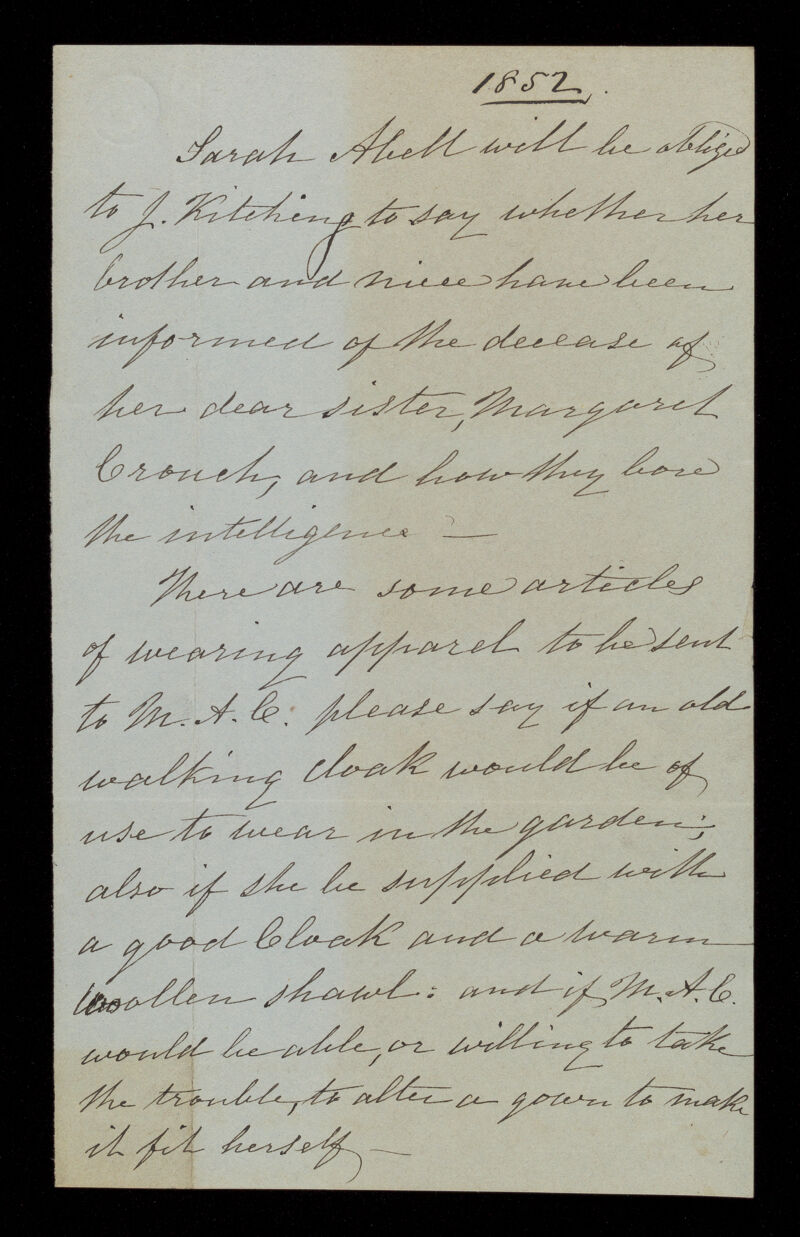 1852.
Sarah Abell will be obliged
to J. Kitching to say whether her
brother and niece have been
informed of the decease of
her dear sister, Margaret
Crouch, and how they bore
the intelligence —
There are some articles
of wearing apparel to be sent
to M. A. C. please say if an old
walking cloak would be of
use to wear in the garden;
also if she be supplied with
a good Cloak and a warm
woollen shawl: and if M. A. C.
would be able, or willing to take
the trouble, to alter a gown to make
it fit herself —